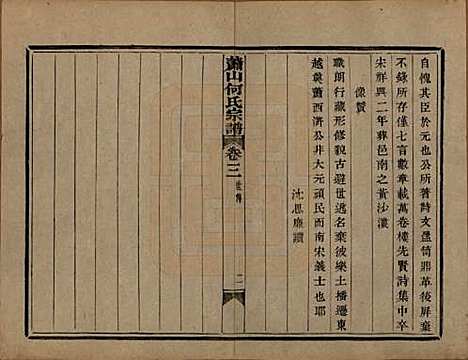 自愧其臣於元也公所著詩文盈筒鼎革後屏棄
不錄所存僅七言數章載萬卷樓先賢詩集中卒
宋祥興二年葬邑南之黃沙瀼
像贊
職朗行藏形修貌古避世逃名棄彼樂土播遷東
越奠蕭西濟公非大元頑民而南宋義士也耶
沈思
蕭山何氏宗譜
卷三
二